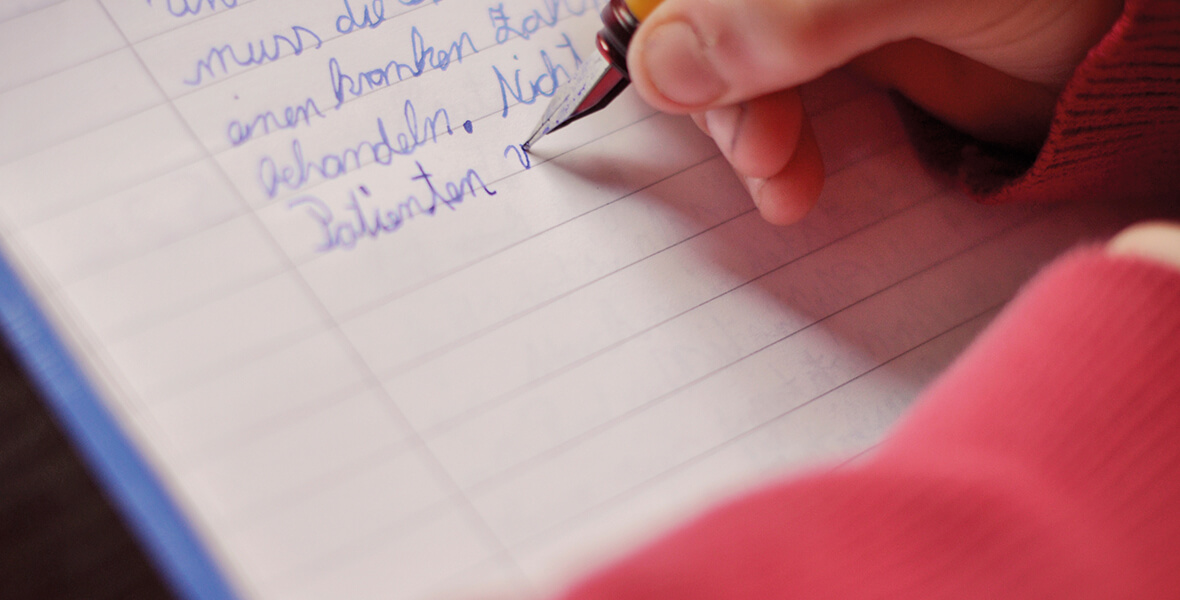 muss die
einen kranken Zahn
behandeln. Nicht
Patienten v